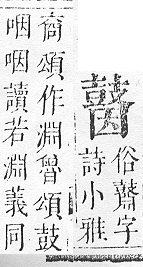 鼝
俗鼘字
詩小雅
商頌作淵魯頌鼓
咽咽讀若淵義同